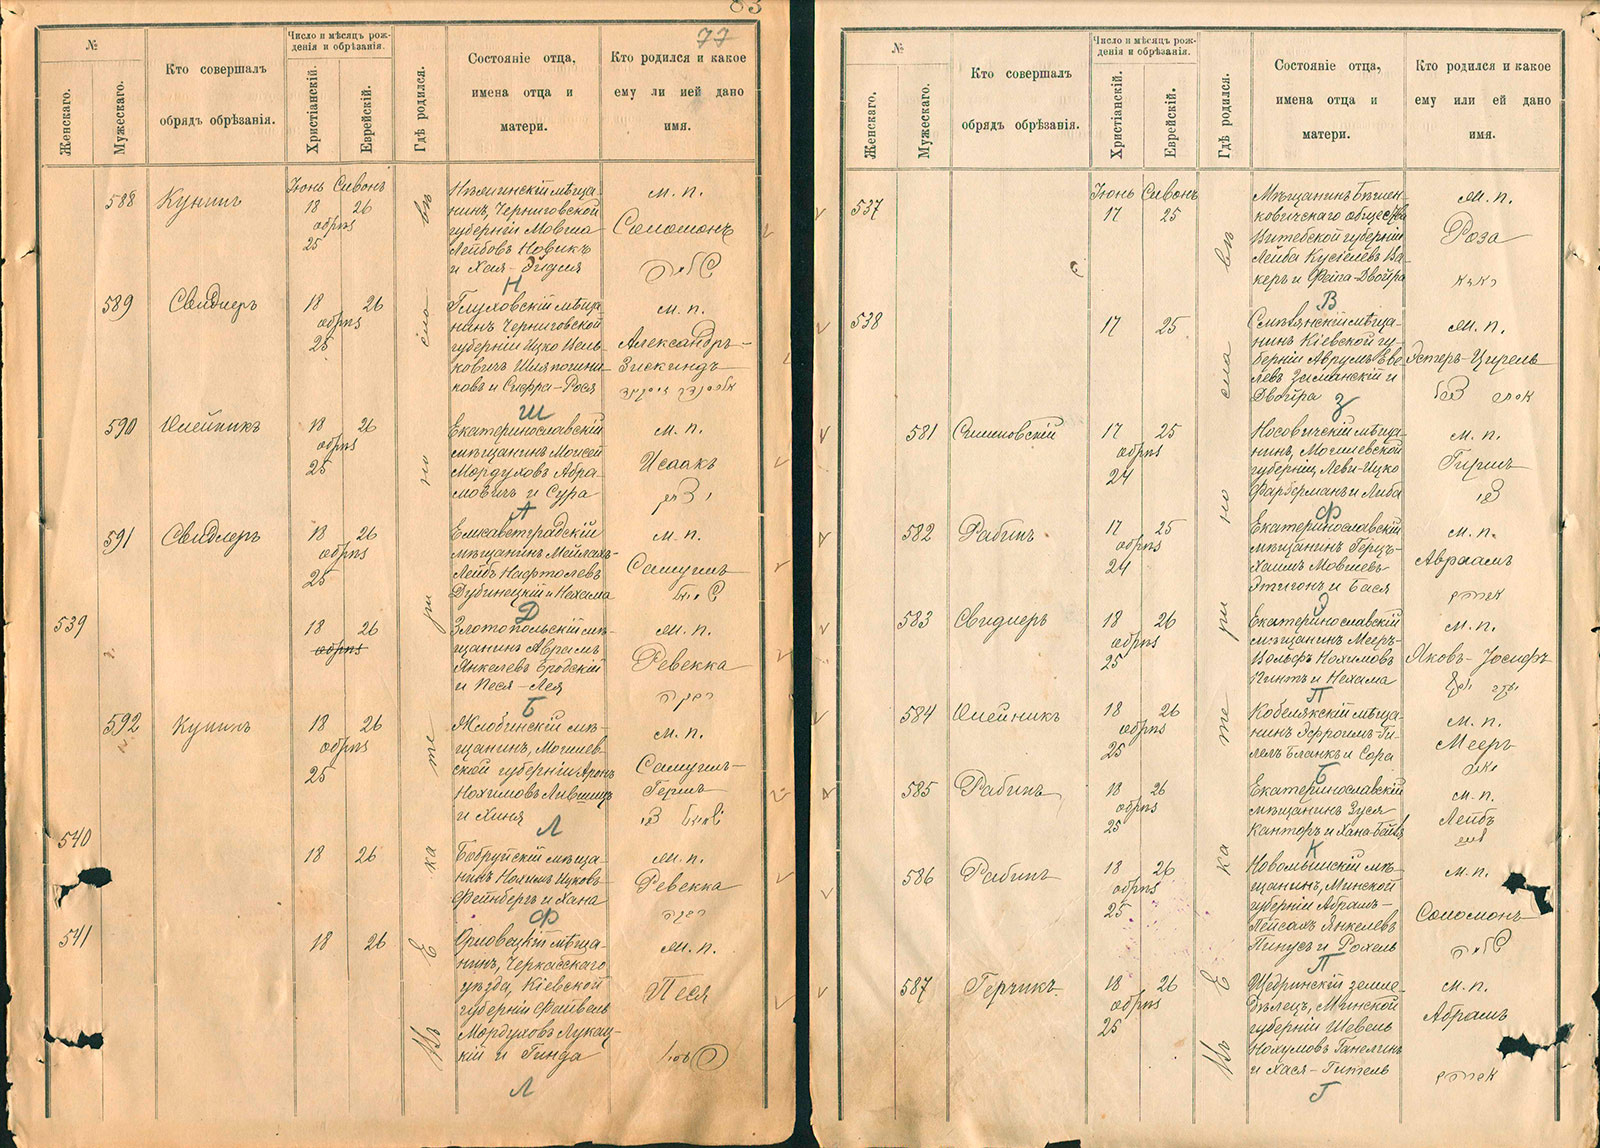 83
77
№
Женскаго.
Мужескаго.
Кто совершалъ
обрядъ обрѣзанія.
Число и мѣсяцъ рож-
денія и обрѣзанія.
Христіанскій.
Еврейскій.
Гдѣ родился.
Состояніе отца,
имена отца и
матери.
Кто родился и какое
ему ли ией дано
имя.
Въ Екатеринославѣ
588
Кунинъ
Іюнь Сивонъ
18 26
обрѣз
25
мѣща-
нинъ, Черниговской
губерніи Мовша
Лейбовъ Новикъ
и Хая-
Н
м. п.
Соломонъ
589
Свидлеръ
18 26
обрѣз
25
Глуховскій мѣща-
нинъ Черниговской
губерніи Ицко
и Сифра-Рося
Ш
м. п.
Александръ-
Зискиндъ
590
Олейникъ
18 26
обрѣз
25
Екатеринославскій
мѣщанинъ Моисей
Мордуховъ Абра-
мовичъ и Сура
А
м. п.
Исаакъ
591
Свидлеръ
18 26
обрѣз
25
Елисаветградскій
мѣщанинъ Мейлахъ-
Лейбъ Нафтолевъ
Дубинецкій и Нехама
Д
м. п.
Самуилъ
539
18 26
обрѣз
Златопольскій мѣ-
щанинъ Аврамъ
Янкелевъ Бродскій
и Песя-Лея
Б
м. п.
Ревекка
רבקה
592
Кунинъ
18 26
обрѣз
25
Жлобинскій мѣ-
щанинъ, Могилев-
ской губерніи Аронъ
Нохимовъ Лившицъ
и Хиня
Л
м. п.
Самуилъ-
Гершъ
540
18 26
Бобруйскій мѣща-
нинъ Нохимъ Ицковъ
Фейнбергъ и Хана
Ф
м. п.
Ревекка
רבקה
541
18 26
мѣща-
нинъ, Черкасскаго
уѣзда, Кіевской
губерніи Файвель
Мордуховъ Лукац-
кій и Гинда
Л
м. п.
Песя
№
Женскаго.
Мужескаго.
Кто совершалъ
обрядъ обрѣзанія.
Число и мѣсяцъ рож-
денія и обрѣзанія.
Христіанскій.
Еврейскій.
Гдѣ родился.
Состояніе отца,
имена отца и
матери.
Кто родился и какое
ему или ей дано
имя.
Въ Екатеринославѣ
537
Іюнь Сивонъ
17 25
Мѣщанинъ
общества
Витебской губерніи
Лейба Кусіелевъ Ва-
керъ и Фейга-Двойра
В
м. п.
Роза
538
17 25
Смѣлянскій мѣща-
нинъ Кіевской гу-
берніи Аврумъ
Зиманскій и
Двойра
З
м. п.
Эстеръ-Цирель
581
17 25
обрѣз
24
Носовичскій мѣща-
нинъ, Могилевской
губерніи, Леви-Ицко
Фарберманъ и Либа
Ф
м. п.
Гиршъ
582
Рабинъ
17 25
обрѣз
24
Екатеринославскій
мѣщанинъ Герцъ-
Хаимъ Мовшевъ
Этигонъ и Бася
Э
м. п.
Авраамъ
583
Свидлеръ
18 26
обрѣз
25
Екатеринославскій
мѣщанинъ Мееръ-
Вольфъ Нохимовъ
и Нехама
П
м. п.
Яковъ-Іосифъ
584
Олейникъ
18 26
обрѣз
25
Кобелякскій мѣща-
нинъ Эфроимъ Ги-
Бланкъ и Сора
Б
м. п.
Мееръ
585
Рабинъ
18 26
обрѣз
25
Екатеринославскій
мѣщанинъ Зуся
Канторъ и Хана-Бейля
К
м. п.
Лейбъ
586
Рабинъ
18 26
обрѣз
25
Новомышскій мѣ-
щанинъ, Минской
губерніи Абрамъ-
Пейсахъ Янкелевъ
Пинусъ и Рохель
П
м. п.
Соломонъ
587
Герчикъ
18 26
обрѣз
25
Щедринскій земле-
дѣлецъ, Минской
губерніи Шевель
Нохумовъ Ганелинъ
и Хася-Гитель
Г
м. п.
Абрамъ